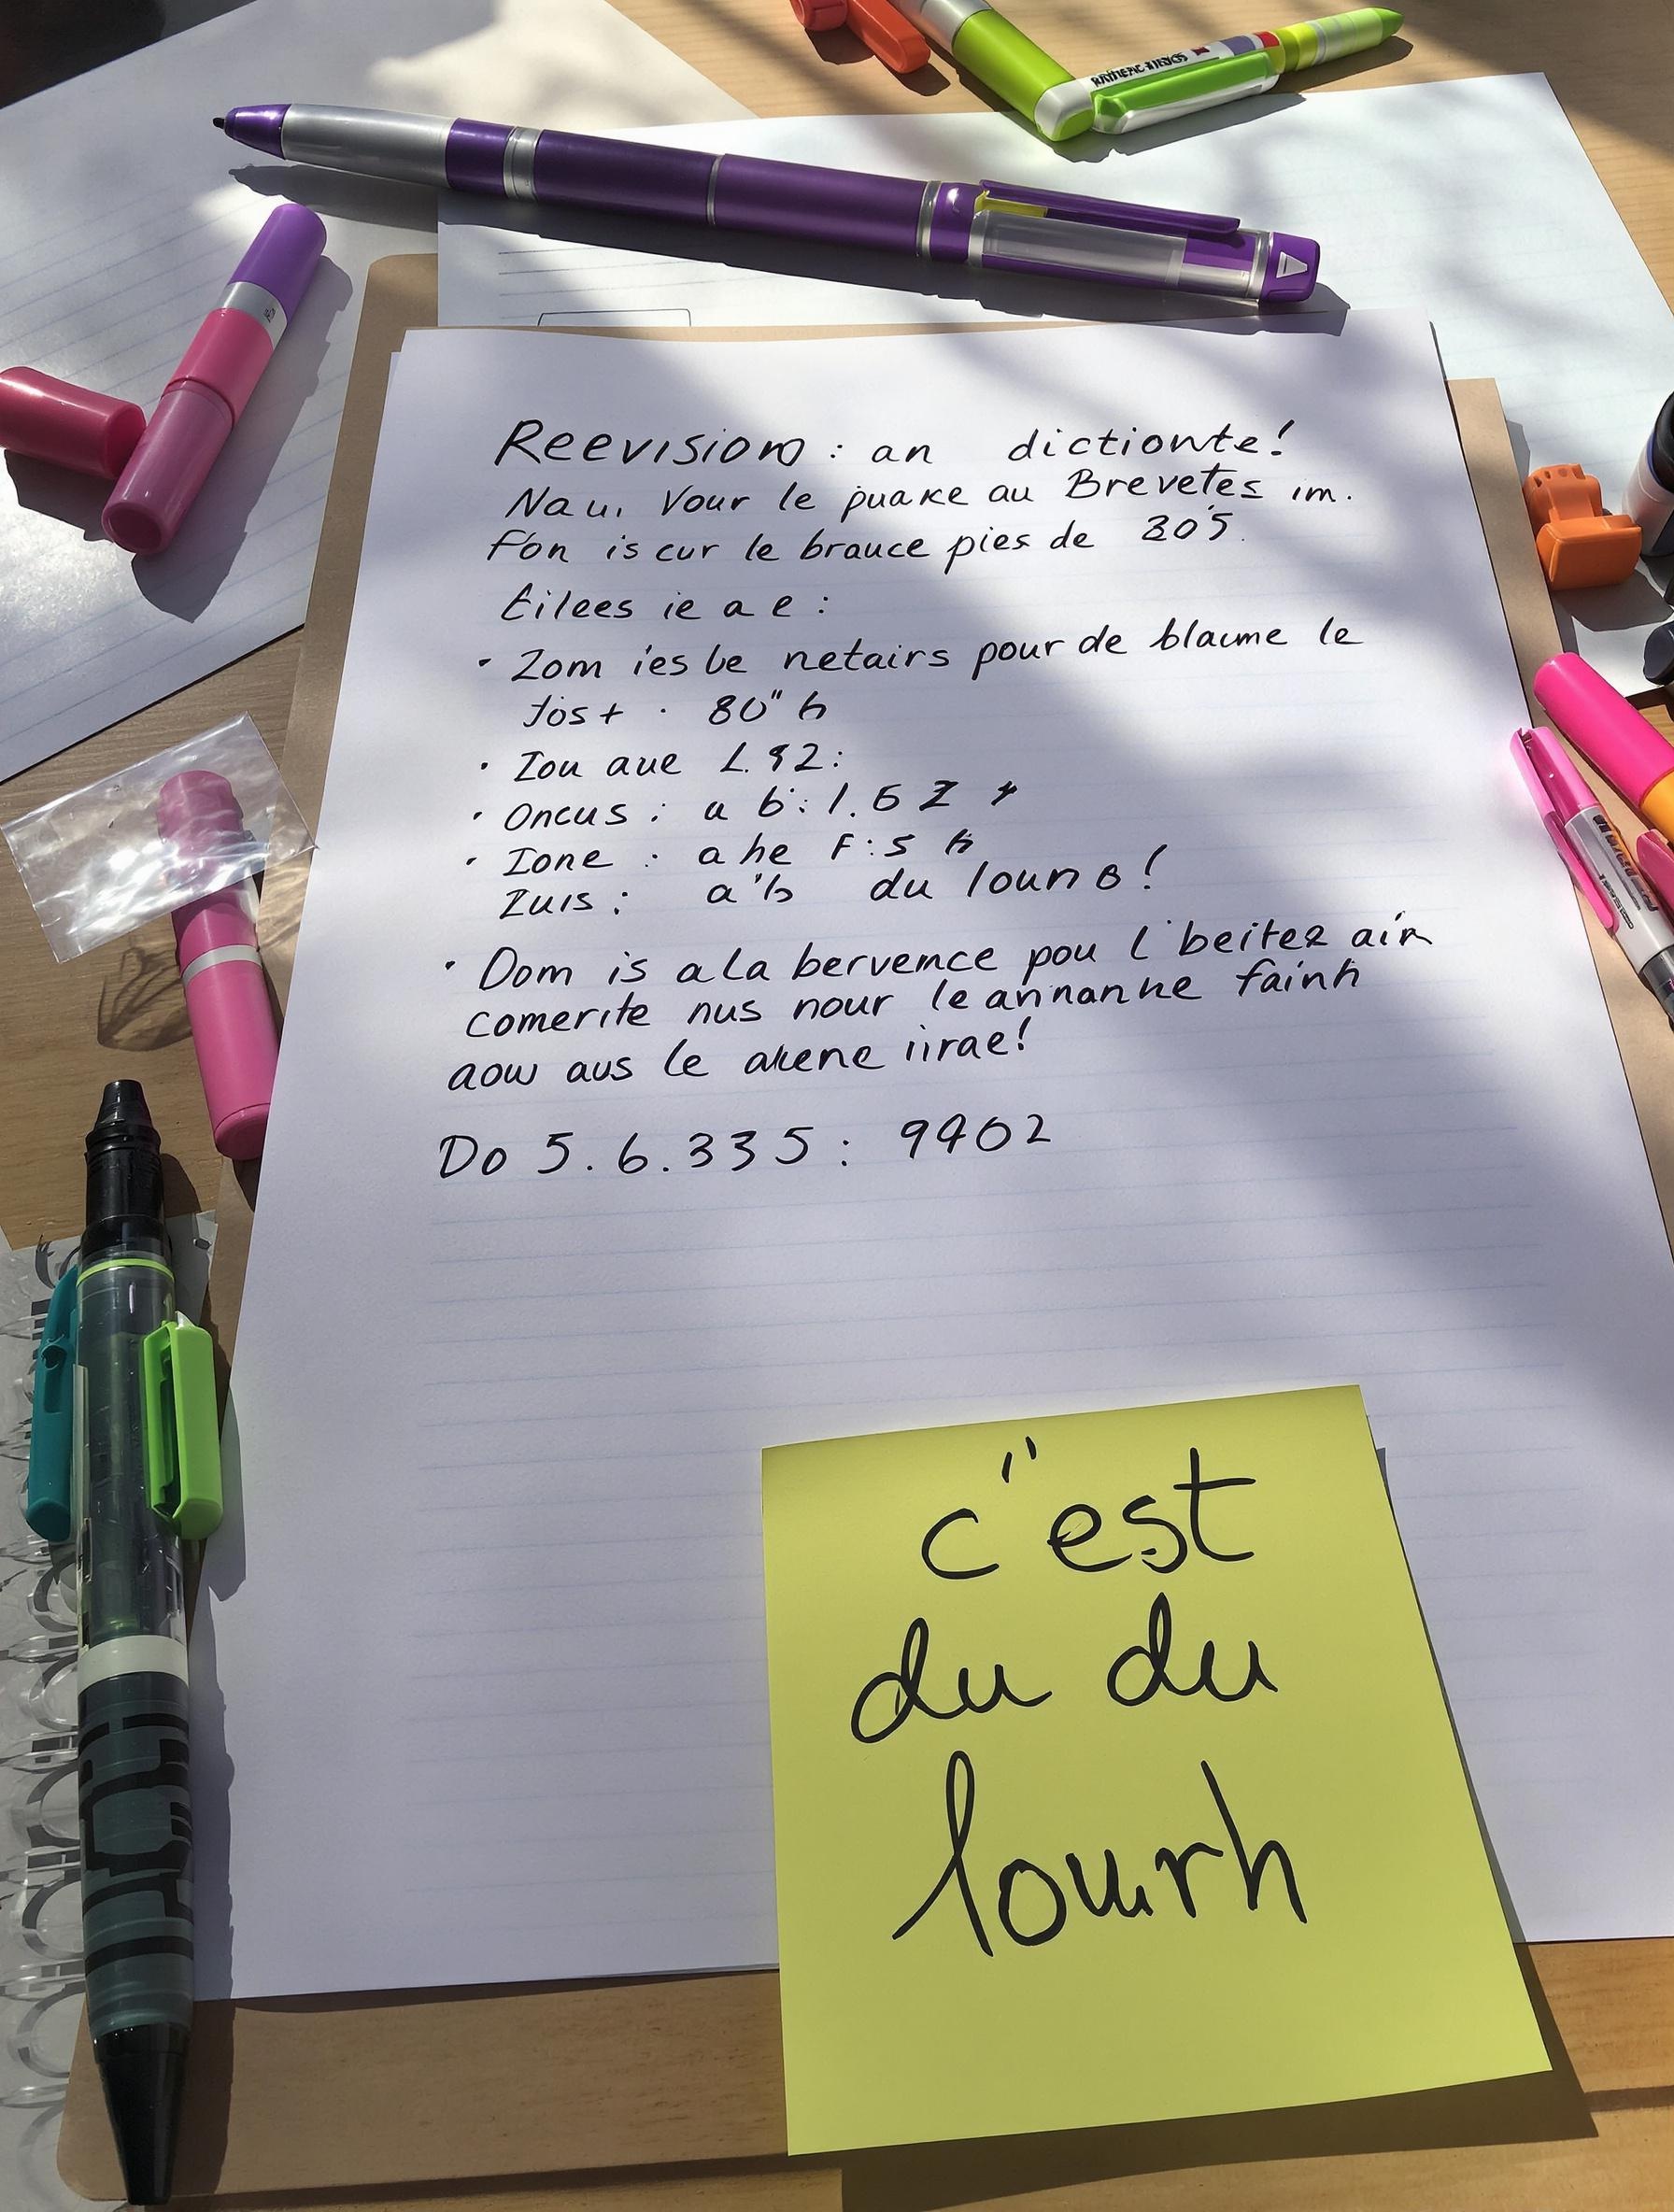 Reevision : an dictionte!
Nau, Vour le puake au Brevetes im.
fon is cur le brauce pies de 305.
Eilees ie a e :
· Zom ies be netairs pour de blaume le
Jost · 80" h
· Iou aue L. 92:
· Oncus : a b:1.6 Z
· Ione : ahe F:5 h
Zuis : a'b du louno!
· Dom is a la bervemce pou l'beitez ain
comerite nus nour le annanhe fainh
aow aus le akene iirae!
Do 5.6.335 : 9902
c"est
du du
lourh